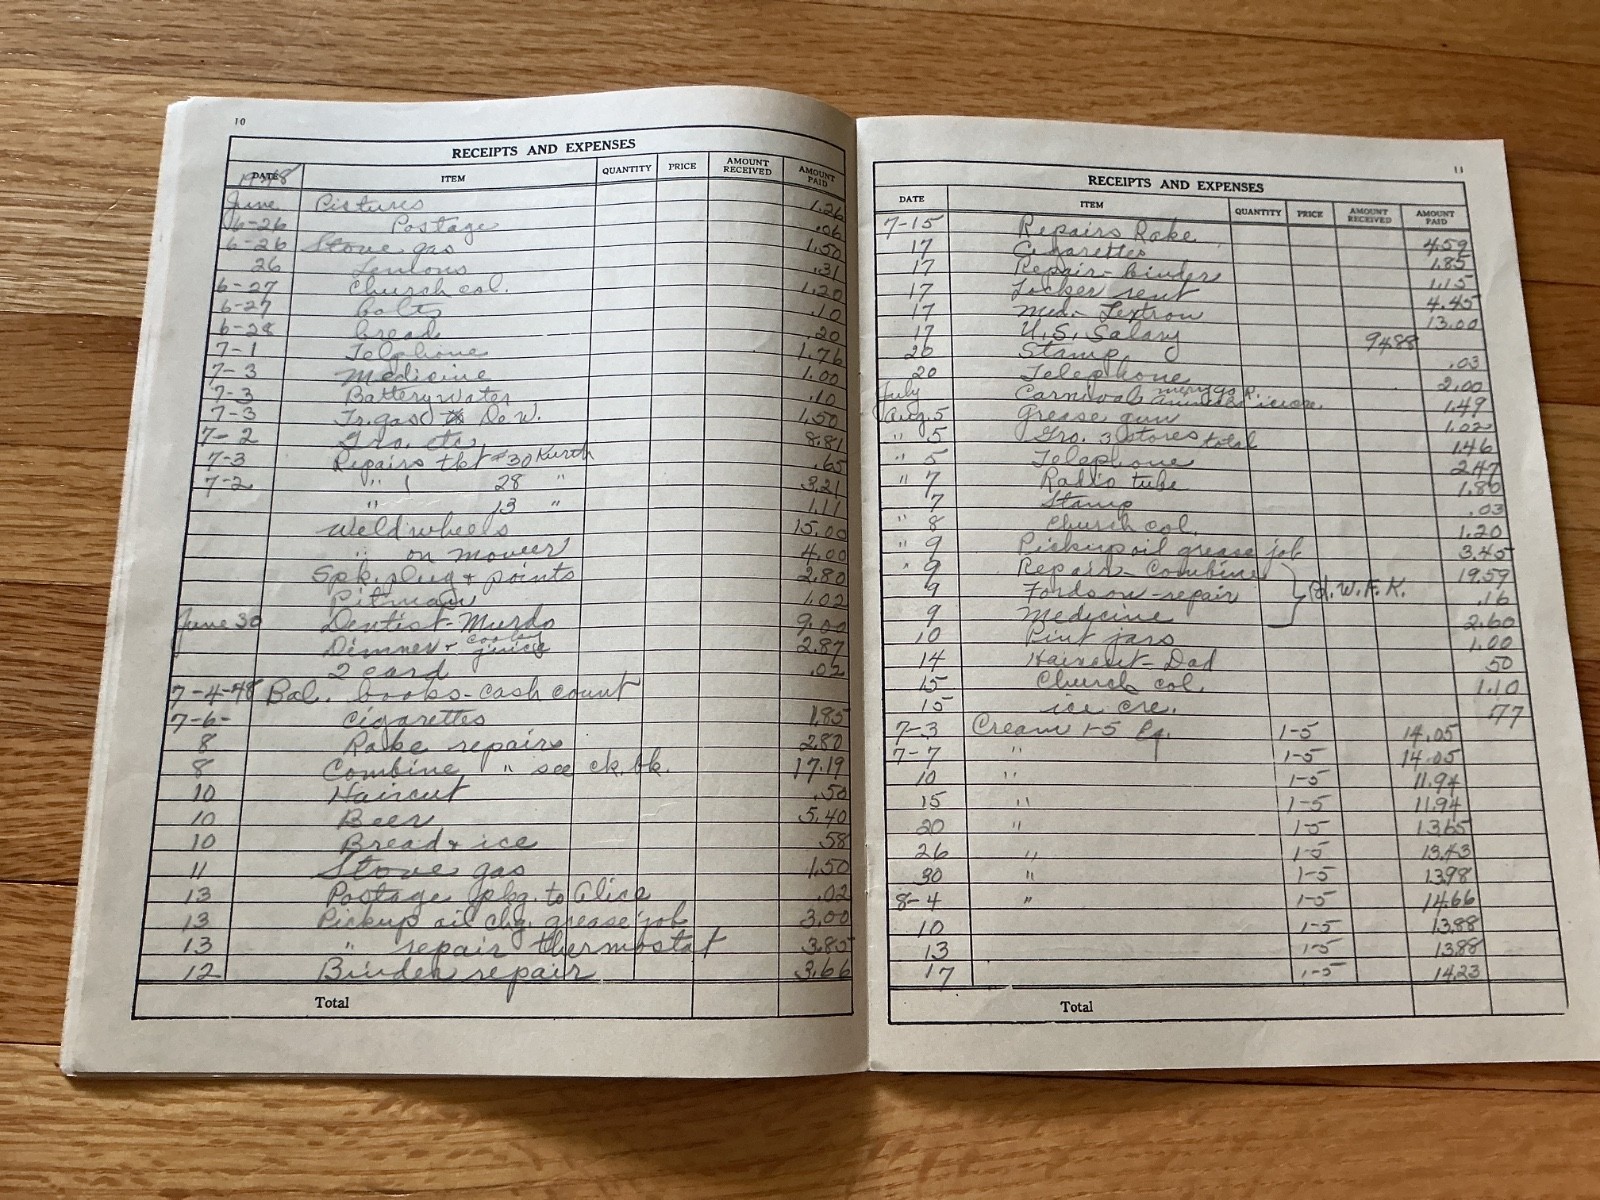 10
RECEIPTS AND EXPENSES
DATE ITEM QUANTITY PRICE AMOUNT RECEIVED AMOUNT PAID
1948
June Pictures 1.26
6-26 Postage .06
6-26 Stove gas 1.50
26 .31
6-27 Church col. 1.20
6-27 bolts .10
6-28 bread .20
7-1 Telephone 1.76
7-3 Medicine 1.00
7-3 Battery water .10
7-3 Tr. gas Den. 1.50
7-2 Gro. etc 8.81
7-3 Repairs tkt #30 Kurth .65
7-2 " 28 " 3.21
" 13 " 1.11
Weld wheels 15.00
" on mower 4.00
Spk. plug + points 2.80
Pitman 1.02
June 30 Dentist-Murdo 9.00
Dinner + juice 2.87
2 card .02
7-4-48 Bal. books-cash count
7-6- Cigarettes 1.85
8 Rake repairs 2.80
8 Combine " see ck. bk. 17.19
10 Haircut .50
10 Beer 5.40
10 Bread + ice .58
11 Stove gas 1.50
13 Postage pkg. to Alice .02
13 Pickup oil chg. grease job 3.00
13 " repair thermostat 3.85
12 Binder repair 3.66
Total
11
RECEIPTS AND EXPENSES
DATE ITEM QUANTITY PRICE AMOUNT RECEIVED AMOUNT PAID
7-15 Repairs Rake 4.59
17 Cigarettes 1.85
17 Repair-Binder 1.15
17 Locker rent 4.45
17 Med. 13.00
17 U.S. Salary 94.88
26 Stamp .03
20 Telephone 2.00
July Carnival merry go r. 1.49
Aug. 5 Grease gun 1.02
" 5 Gro. 3 stores total 1.46
" 5 Telephone 2.47
" 7 Radio tube 1.80
7 Stamp .03
" 8 Church col. 1.20
" 9 Pickup oil grease job 3.45
" 9 Repair-Combine 19.59
9 Fordson-repair W.F.K. .16
9 Medicine 2.60
10 Pint jars 1.00
14 Haircut-Dad .50
15 Church col. 1.10
15 ice cre. .77
7-3 Cream 1-5 1-5 14.05
7-7 " 1-5 14.05
10 " 1-5 11.94
15 " 1-5 11.94
20 " 1-5 13.65
26 " 1-5 13.43
30 " 1-5 13.98
8-4 " 1-5 14.66
10 1-5 13.88
13 1-5 13.88
17 1-5 14.23
Total